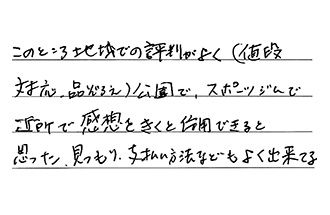 このところ地域での評判がよく（値段
対応、品ぞろえ）公園で、スポーツジムで
近所で感想をきくと信用できると
思った、見つもり、支払い方法などもよく出来てる